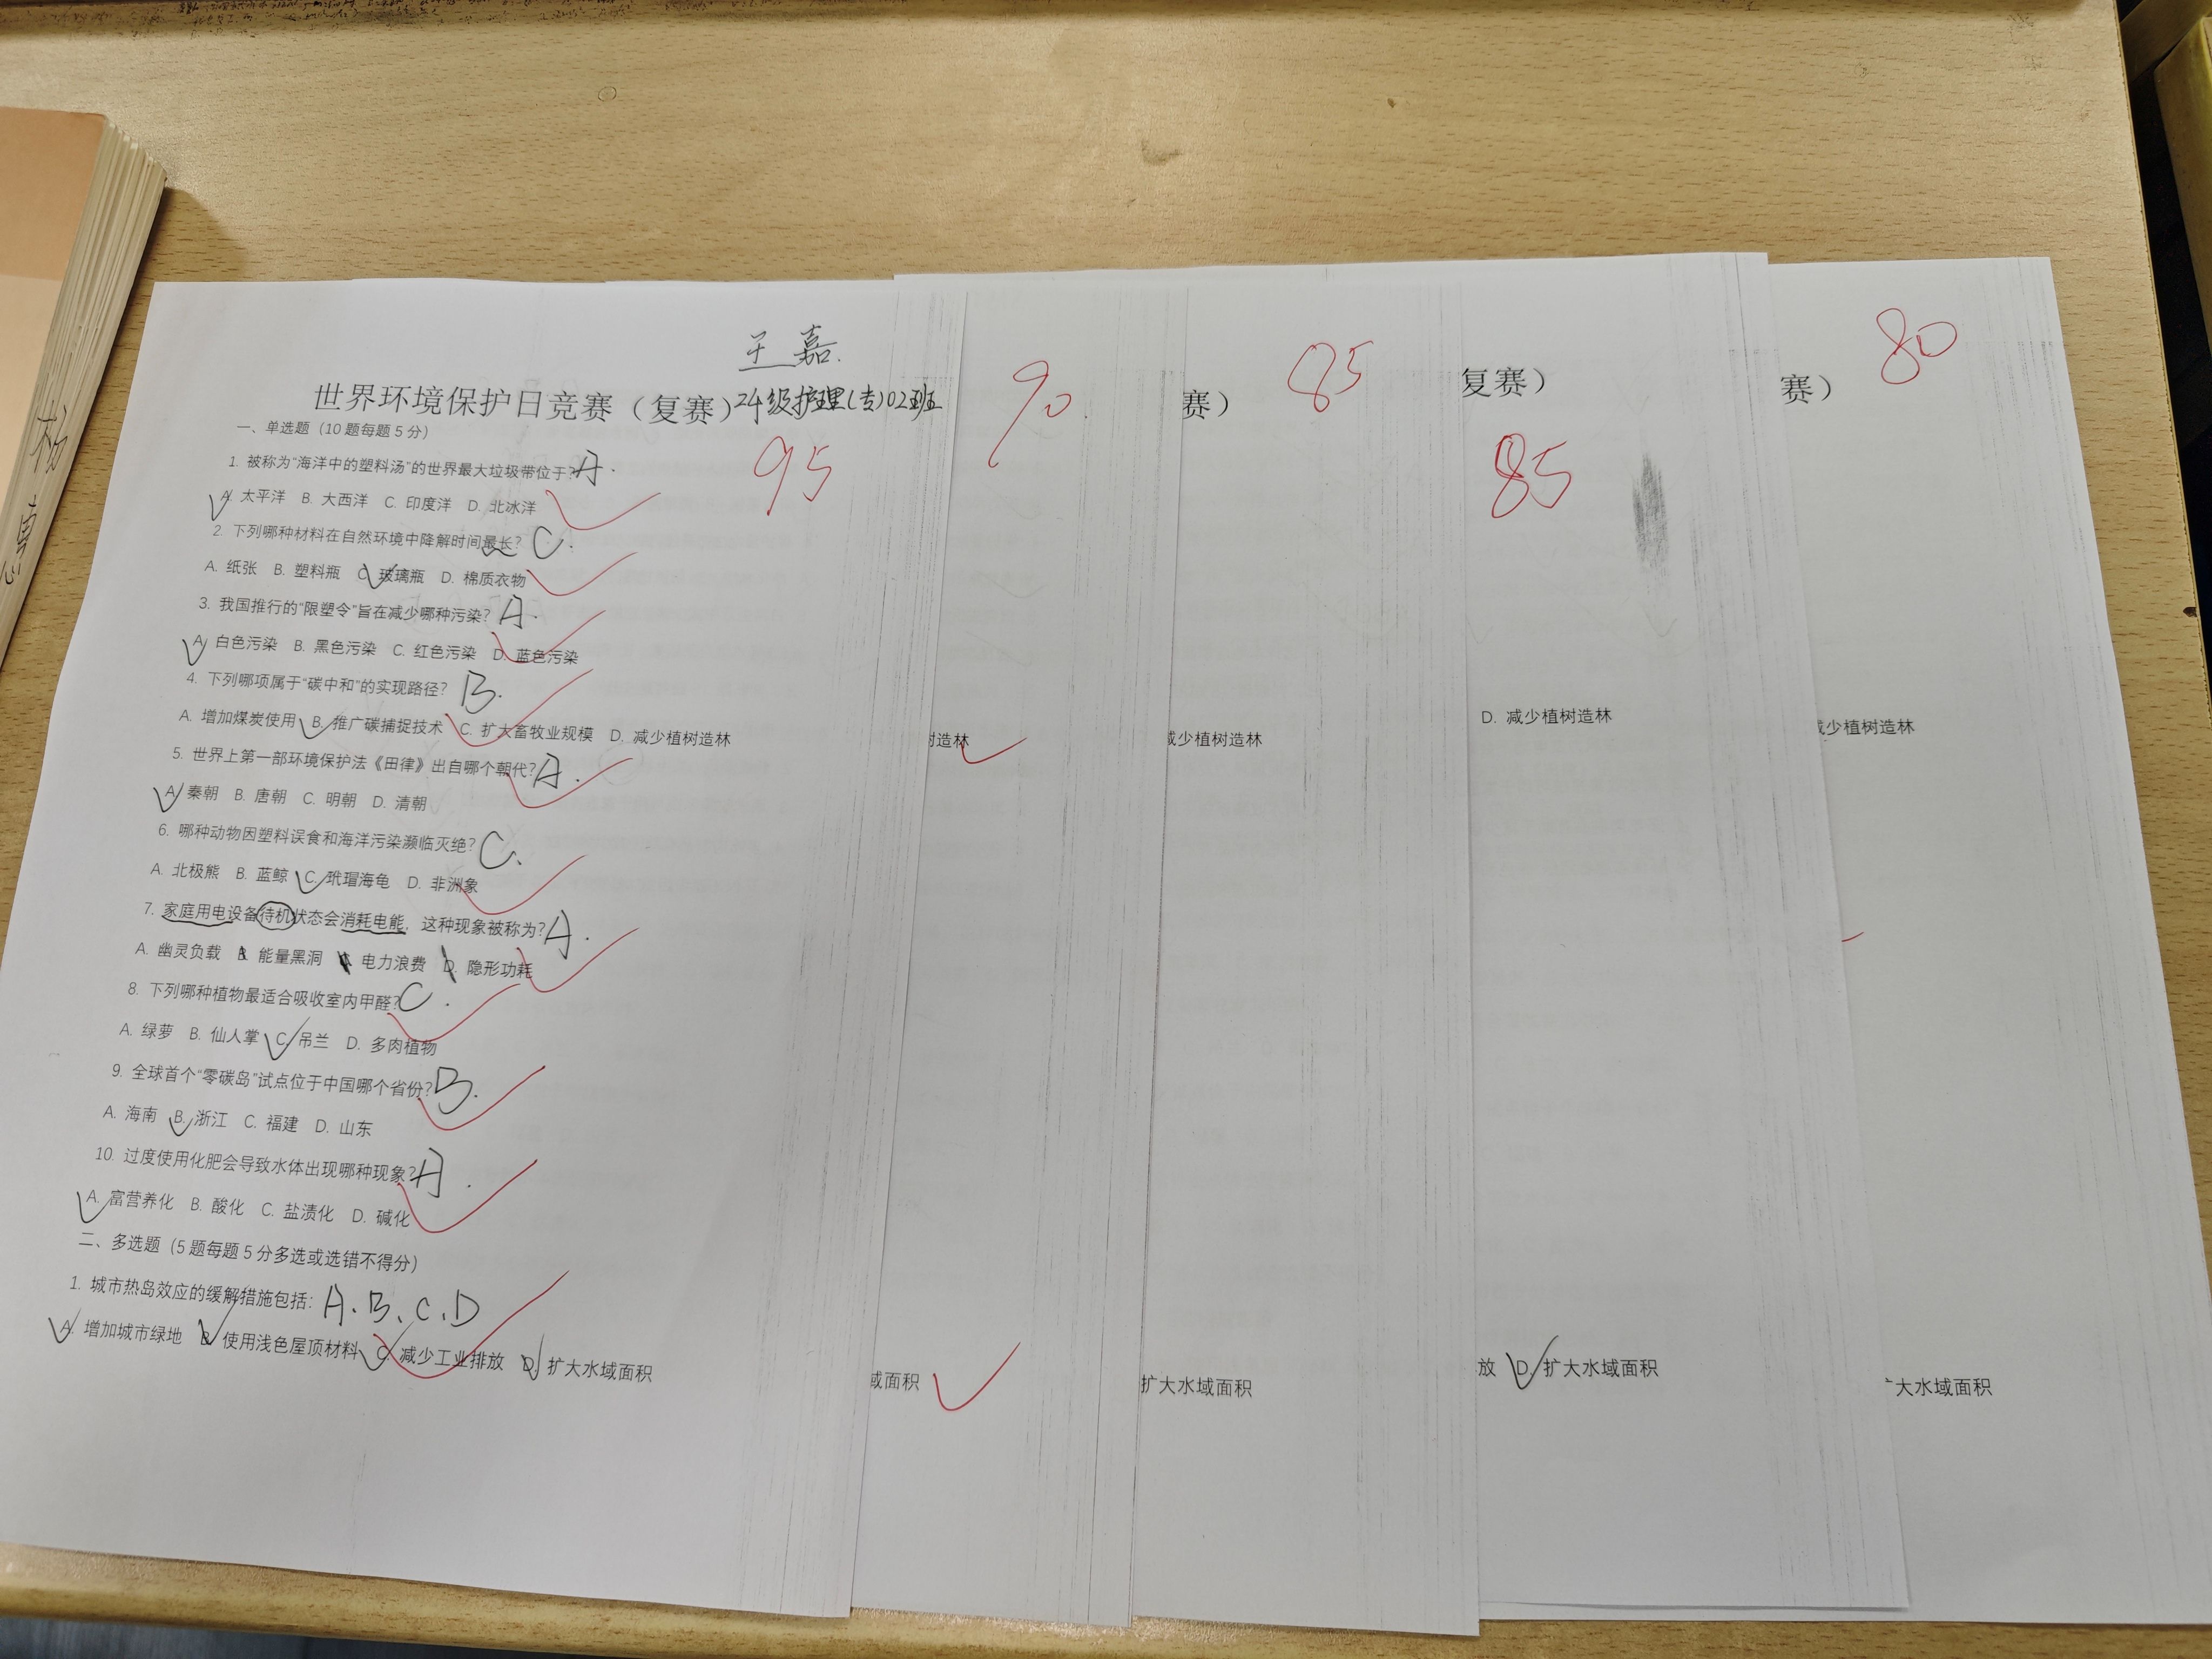 王嘉.
世界环境保护日竞赛（复赛）24级护理(专)02班
95
一、单选题（10题每题5分）
1. 被称为“海洋中的塑料汤”的世界最大垃圾带位于?A.
A. 太平洋 B. 大西洋 C. 印度洋 D. 北冰洋
2. 下列哪种材料在自然环境中降解时间最长? C.
A. 纸张 B. 塑料瓶 C. 玻璃瓶 D. 棉质衣物
3. 我国推行的“限塑令”旨在减少哪种污染? A.
A. 白色污染 B. 黑色污染 C. 红色污染 D. 蓝色污染
4. 下列哪项属于“碳中和”的实现路径? B.
A. 增加煤炭使用 B. 推广碳捕捉技术 C. 扩大畜牧业规模 D. 减少植树造林
5. 世界上第一部环境保护法《田律》出自哪个朝代? A.
A. 秦朝 B. 唐朝 C. 明朝 D. 清朝
6. 哪种动物因塑料误食和海洋污染濒临灭绝? C.
A. 北极熊 B. 蓝鲸 C. 玳瑁海龟 D. 非洲象
7. 家庭用电设备待机状态会消耗电能，这种现象被称为? A.
A. 幽灵负载 B. 能量黑洞 电力浪费 D. 隐形功耗
8. 下列哪种植物最适合吸收室内甲醛? C.
A. 绿萝 B. 仙人掌 C. 吊兰 D. 多肉植物
9. 全球首个“零碳岛”试点位于中国哪个省份? B.
A. 海南 B. 浙江 C. 福建 D. 山东
10. 过度使用化肥会导致水体出现哪种现象? A.
A. 富营养化 B. 酸化 C. 盐渍化 D. 碱化
二、多选题（5题每题5分多选或选错不得分）
1. 城市热岛效应的缓解措施包括: A.B、C、D
A. 增加城市绿地 B. 使用浅色屋顶材料 C. 减少工业排放 D. 扩大水域面积
90
树造林
域面积
赛）
85
减少植树造林
扩大水域面积
复赛）
85
D. 减少植树造林
放 D. 扩大水域面积
赛）
80
减少植树造林
大水域面积